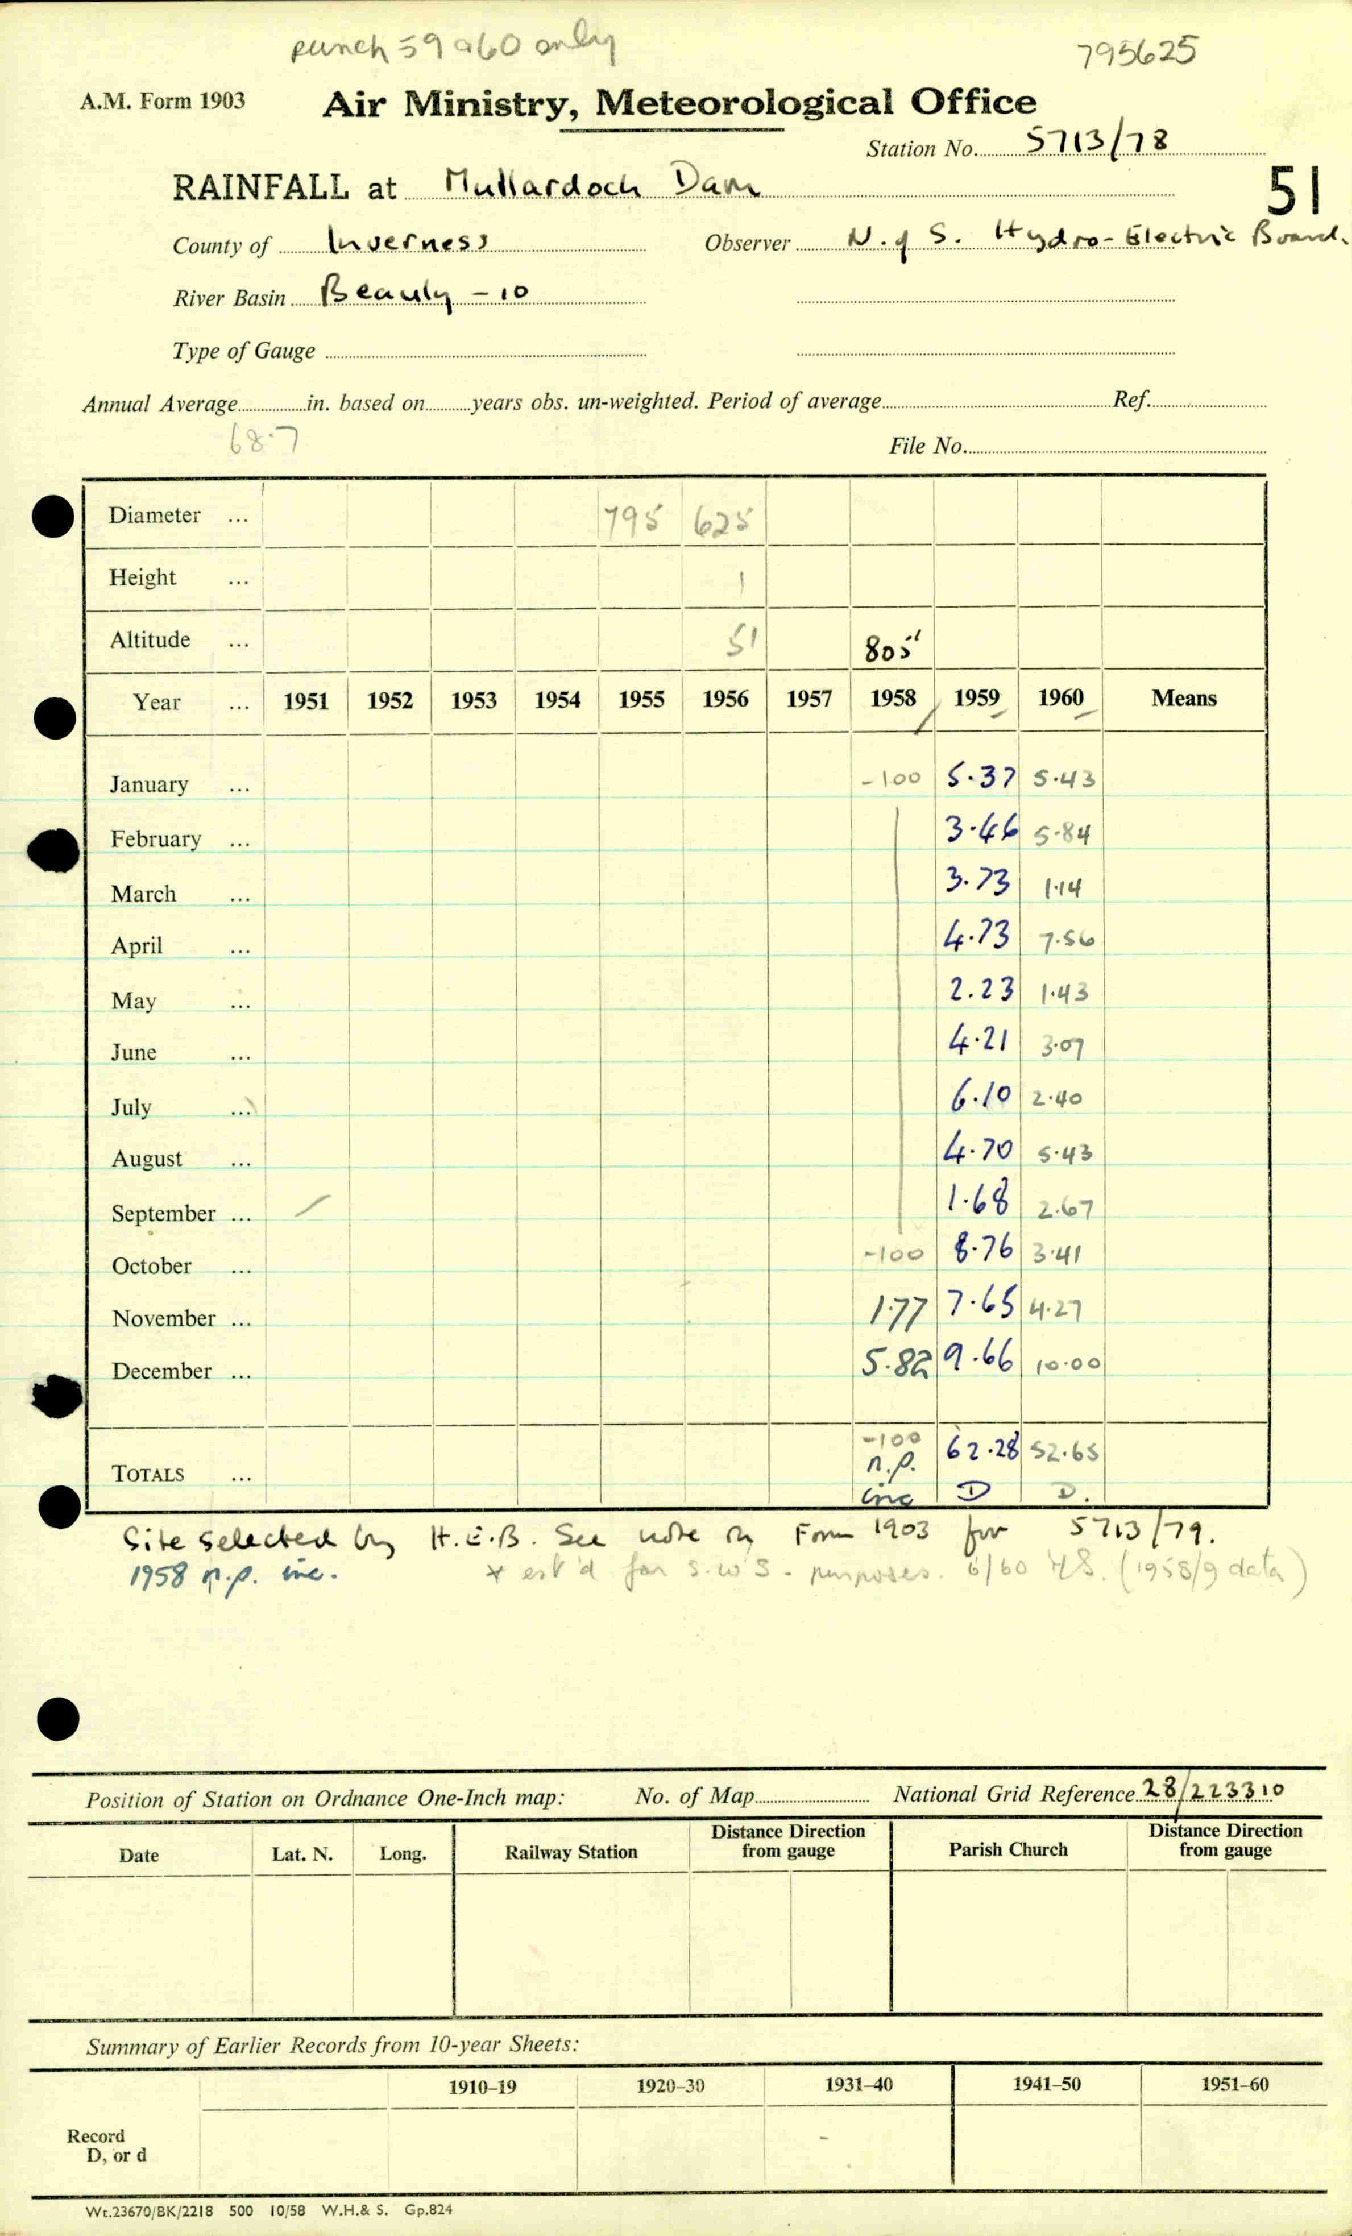 punch 59 & 60 only
795625
A.M. Form 1903
Air Ministry, Meteorological Office
Station No. 5713/78
RAINFALL at Mullardoch Dam
51
County of Inverness
Observer N. of S. Hydro-Electric Board.
River Basin Beauly - 10
Type of Gauge
Annual Average in. based on years obs. un-weighted. Period of average Ref.
68.7
File No.
Diameter ... 795 625
Height ... 1
Altitude ... 51 805'
Year ... 1951 1952 1953 1954 1955 1956 1957 1958 1959 1960 Means
January ... -100 5.37 5.43
February ... 3.46 5.84
March ... 3.73 1.14
April ... 4.73 7.56
May ... 2.23 1.43
June ... 4.21 3.07
July ... 6.10 2.40
August ... 4.70 5.43
September ... 1.68 2.67
October ... -100 8.76 3.41
November ... 1.77 7.65 4.27
December ... 5.82 9.66 10.00
-100 62.28 52.65
TOTALS ... n.p.
inc D D.
Site selected by H.E.B. See note on Form 1903 for 5713/79.
1958 n.p. inc. * est'd for S.W.S. purposes. 6/60 (1958/9 data)
Position of Station on Ordnance One-Inch map: No. of Map National Grid Reference 28/223310
Date Lat. N. Long. Railway Station Distance Direction from gauge Parish Church Distance Direction from gauge
Summary of Earlier Records from 10-year Sheets:
1910-19 1920-30 1931-40 1941-50 1951-60
Record
D, or d
Wt.23670/BK/2218 500 10/58 W.H.& S. Gp.824